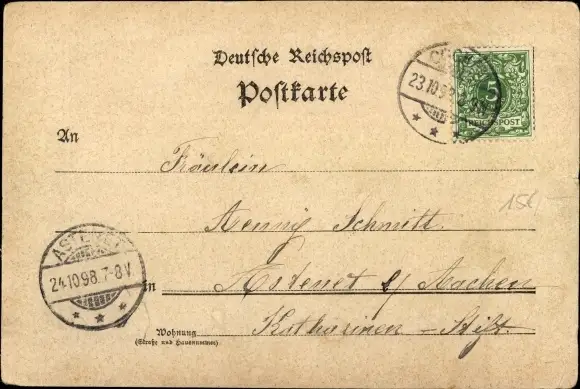 Deutsche Reichspost
Postkarte
23.10.98
5
REICHSPOST
An
Fräulein
Schmitt
15,-
ASTENET
24.10.98.7-8V
in Astenet b/ Aachen
Katharinen-Stift.
Wohnung
(Straße und Hausnummer)